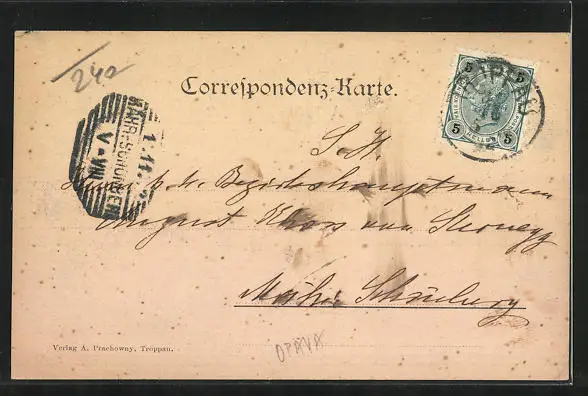 240
Correspondenz-Karte.
5 5
5 5
1.11.
MÄHR.-SCHÖNBERG
V-VIII
S. H.
k. k. Bezirkshauptmann
August von Sternegg
Mähr. Schönberg
Verlag A. Prachowny, Troppau.
OPAVA